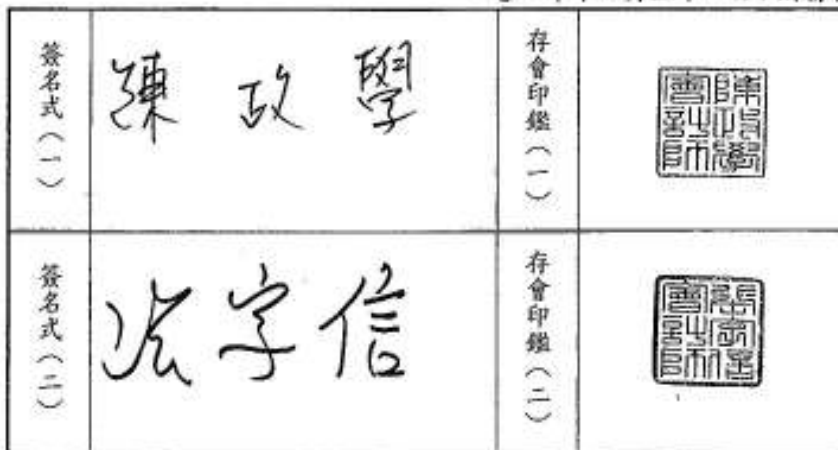 簽名式(一)
陳政學
存會印鑑(一)
陳政學會計師
簽名式(二)
張字信
存會印鑑(二)
張字信會計師